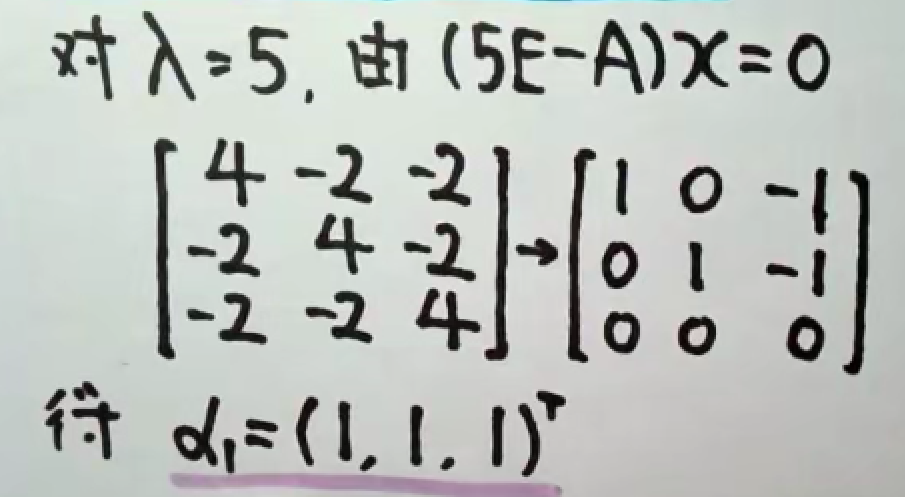 对 λ=5, 由 (5E-A)x=0
[4 -2 -2
-2 4 -2
-2 -2 4] → [1 0 -1
0 1 -1
0 0 0]
得 α₁=(1, 1, 1)ᵀ